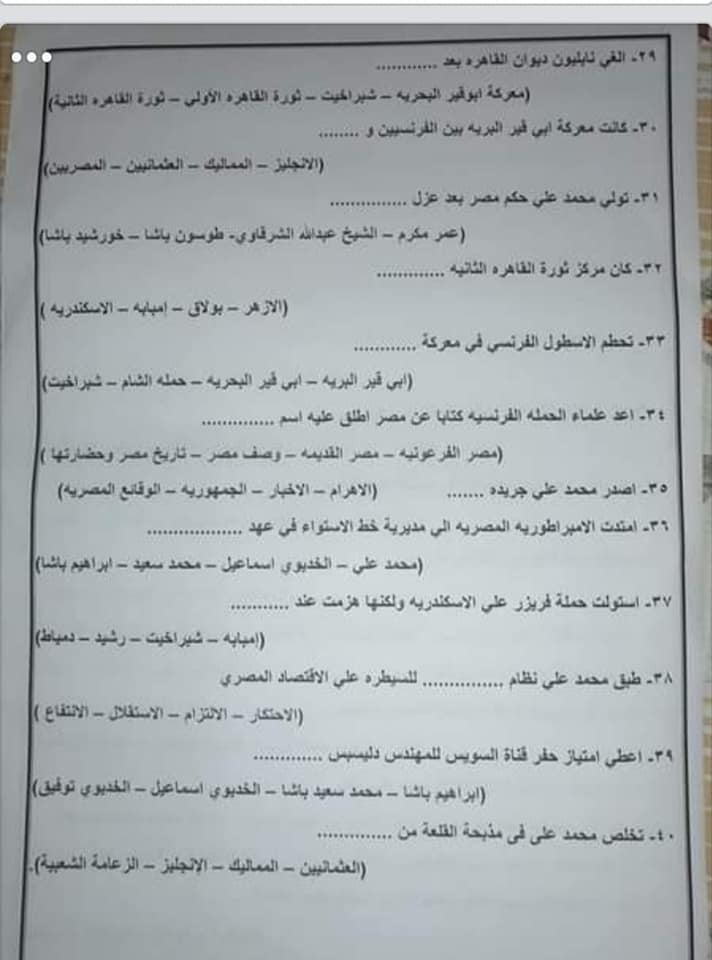 ٢٩- الغي نابليون ديوان القاهره بعد ............
(معركة ابوقير البحريه – شبراخيت – ثورة القاهره الأولي – ثورة القاهره الثانية)
٣٠- كانت معركة ابي قير البريه بين الفرنسيين و ........
(الانجليز – المماليك – العثمانيين – المصريين)
٣١- تولي محمد علي حكم مصر بعد عزل ..............
(عمر مكرم – الشيخ عبدالله الشرقاوي- طوسون باشا – خورشيد باشا)
٣٢- كان مركز ثورة القاهره الثانيه .............
(الازهر – بولاق – إمبابه – الاسكندريه )
٣٣- تحطم الاسطول الفرنسي في معركة ............
(ابي قير البريه – ابي قير البحريه – حمله الشام – شبراخيت)
٣٤- اعد علماء الحمله الفرنسيه كتابا عن مصر اطلق عليه اسم ..............
(مصر الفرعونيه – مصر القديمه – وصف مصر – تاريخ مصر وحضارتها )
٣٥- اصدر محمد علي جريده ....... (الاهرام – الاخبار – الجمهوريه – الوقائع المصريه)
٣٦- امتدت الامبراطوريه المصريه الي مديرية خط الاستواء في عهد ..................
(محمد علي – الخديوي اسماعيل – محمد سعيد – ابراهيم باشا)
٣٧- استولت حملة فريزر علي الاسكندريه ولكنها هزمت عند ...........
(امبابه – شبراخيت – رشيد – دمياط)
٣٨- طبق محمد علي نظام ............... للسيطره علي الاقتصاد المصري
(الاحتكار – الالتزام – الاستقلال – الانتفاع )
٣٩- اعطي امتياز حفر قناة السويس للمهندس دليسبس .............
(ابراهيم باشا – محمد سعيد باشا – الخديوي اسماعيل – الخديوي توفيق)
٤٠- تخلص محمد على فى مذبحة القلعة من ..............
(العثمانيين – المماليك – الإنجليز – الزعامة الشعبية).